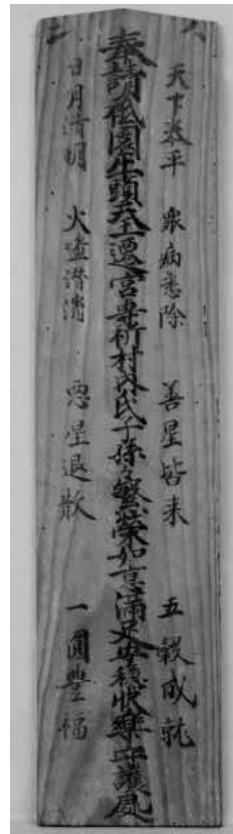 天下泰平　衆病悉除　善星皆来　五穀成就
奉請祇園牛頭天王遷宮専祈村内氏子孫々繁栄如意満足安穏快楽守護処
日月清明　火盗潜消　悪星退散　一圓豊福